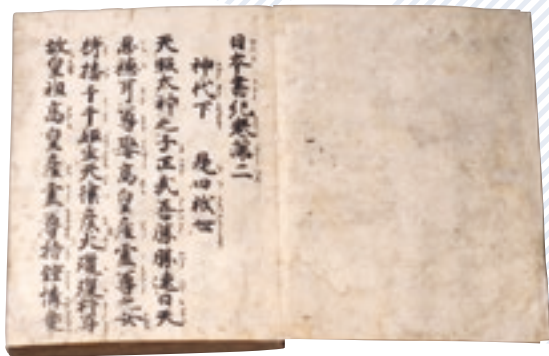 日本書紀巻第二
神代下
天照大神之子正哉吾勝勝速日天
忍穂耳尊娶高皇産霊尊之女
栲幡千千姫生天津彦火瓊瓊杵尊
故皇祖高皇産霊尊特鍾憐愛